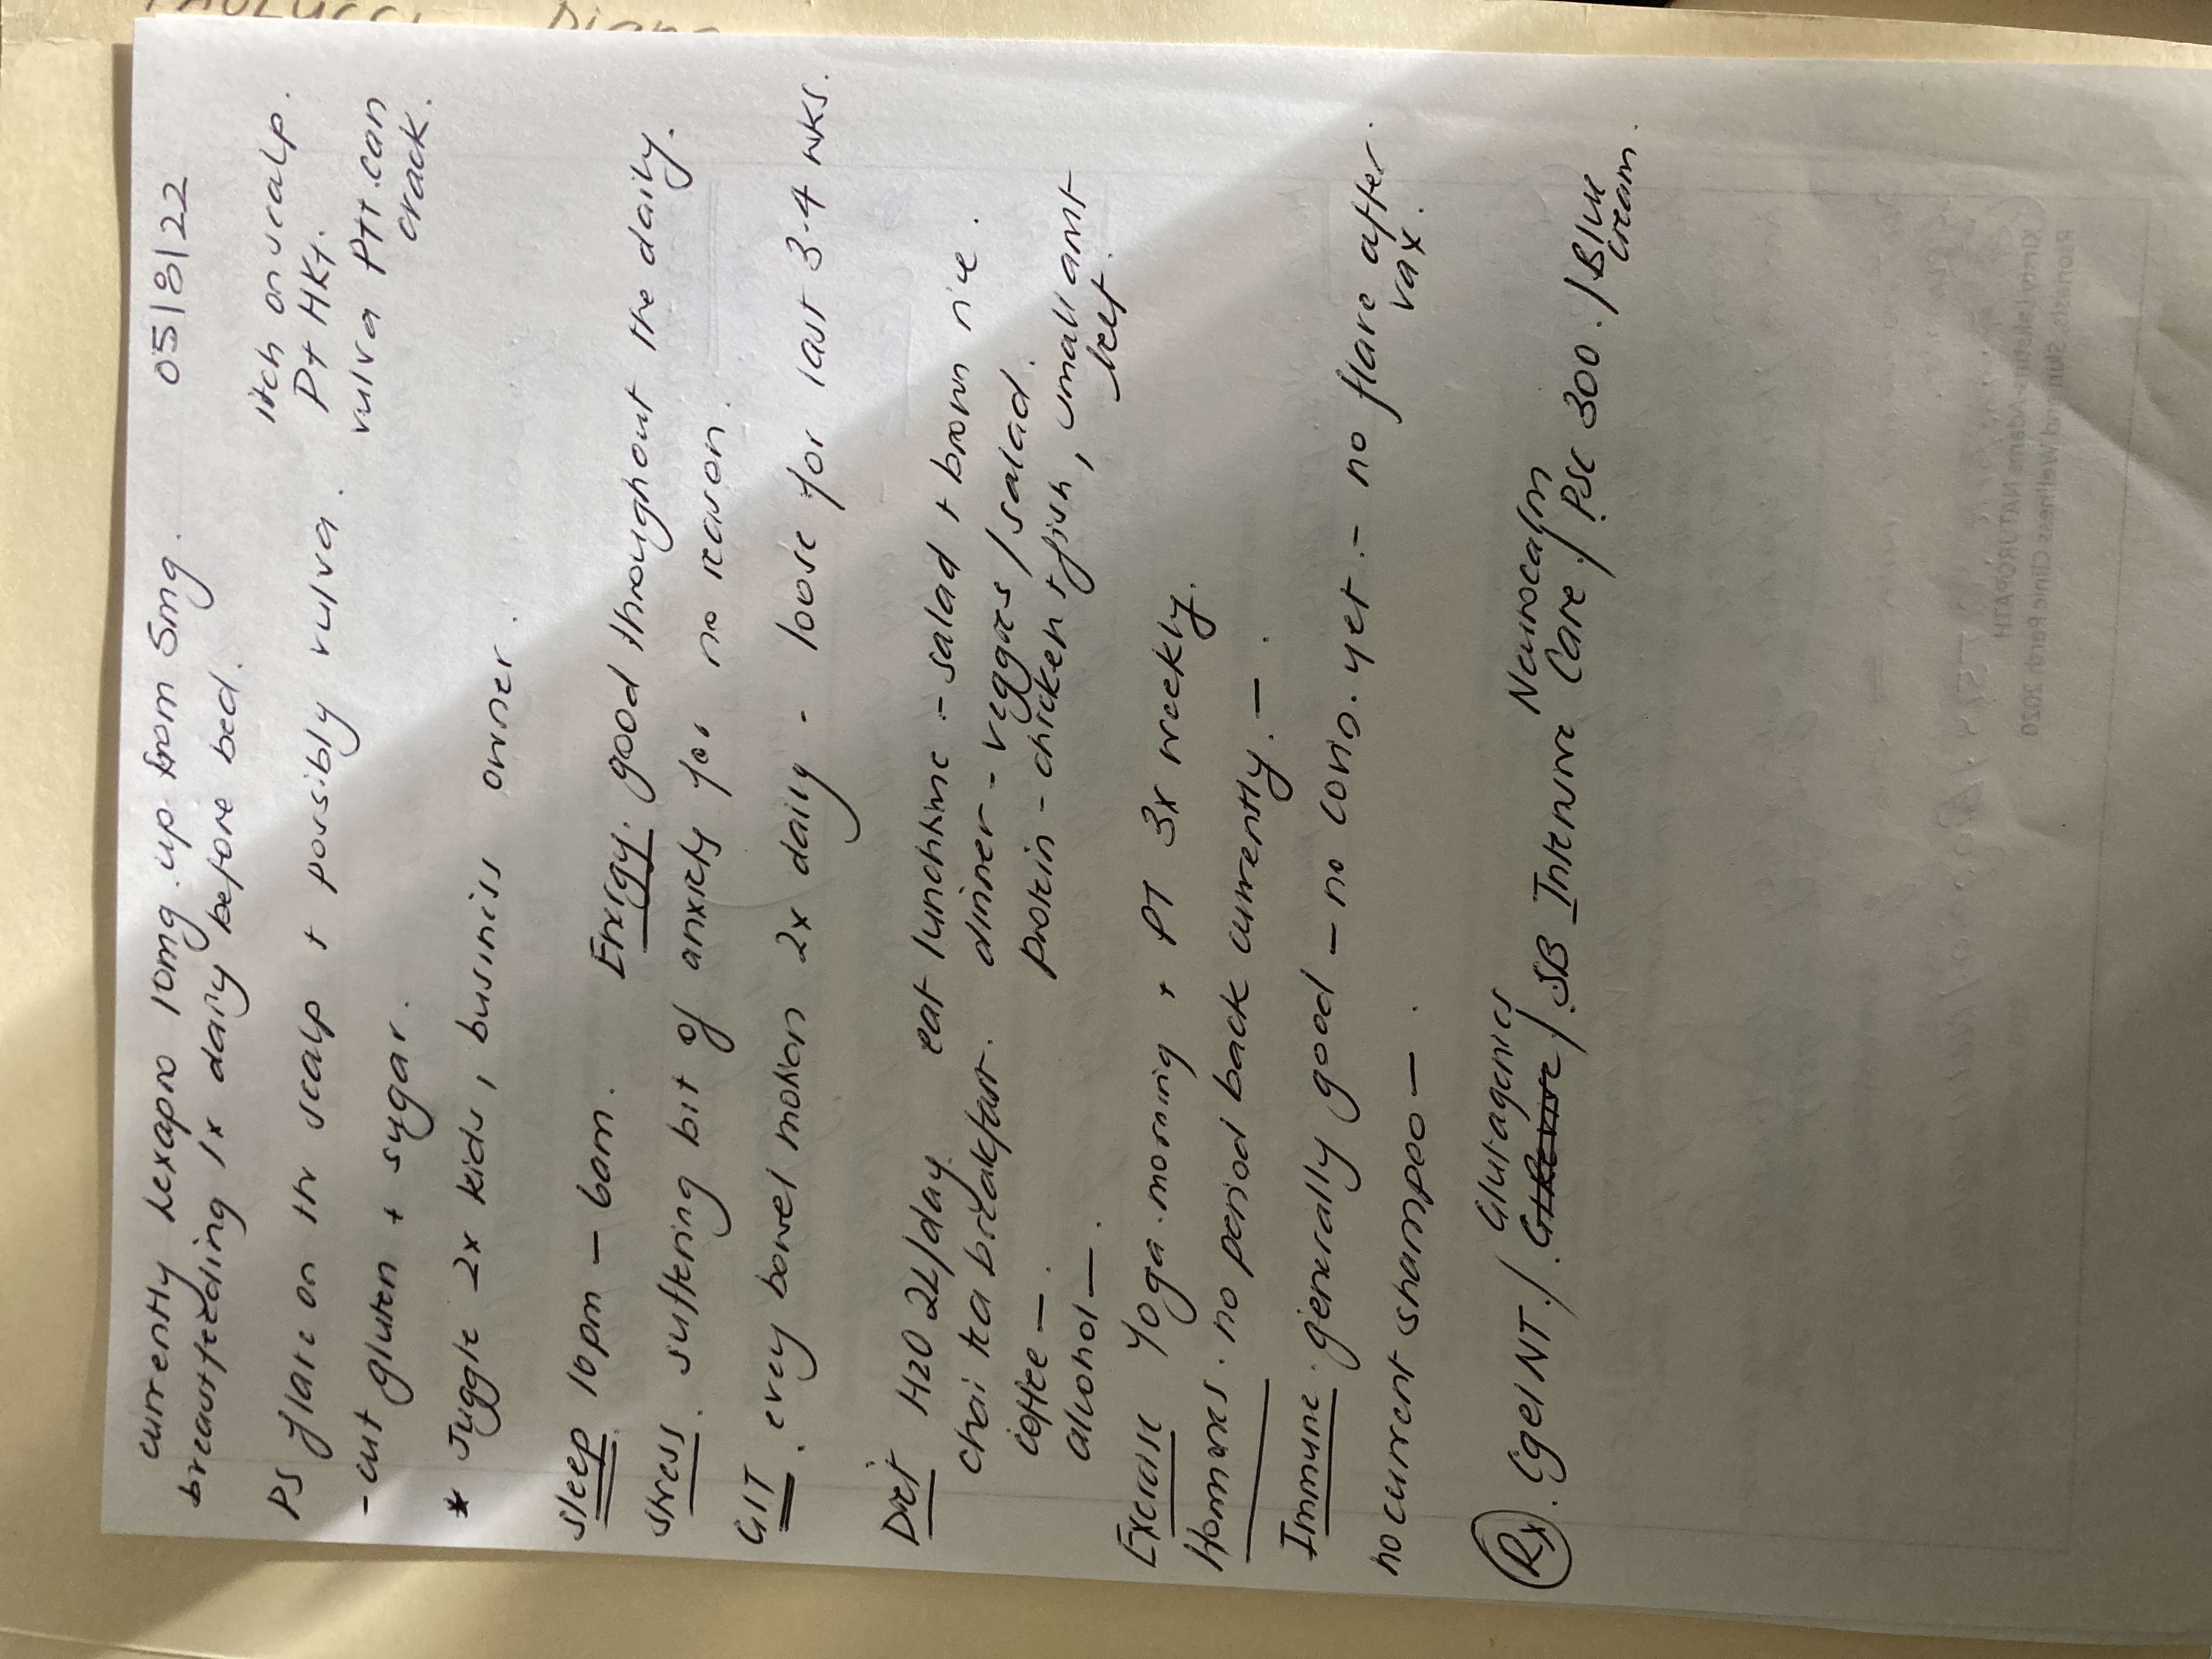 currently Lexapro 10mg. up from 5mg. 05/8/22
breastfeeding 1x daily before bed.
itch on scalp.
Pt Hx.
PS flare on the scalp + possibly vulva.
vulva can
crack.
- cut gluten + sugar.
* Juggle 2x kids, business owner.
Sleep 10pm - 6am. Energy. good throughout the daily.
Stress. suffering bit of anxiety for no reason.
GIT. every bowel motion 2x daily - loose for last 3-4 wks.
Diet H2O 2L/day. eat lunchtime :- salad + brown rice.
chai tea breakfast. dinner - veggies / salad.
coffee - protein - chicken + fish, small amt
beef.
alcohol -
Exercise Yoga. morning + PT 3x weekly.
Hormones. no period back currently. -
Immune. generally good - no covid. yet. - no flare after
vax.
no current shampoo -
Rx. Cgel NT. / Glutagenics / SB Intensive Care / Neurocalm / Psc 300. / Blu
cream.
Kirsty NATUROPATH
Skin and Wellness Clinic Perth 2020